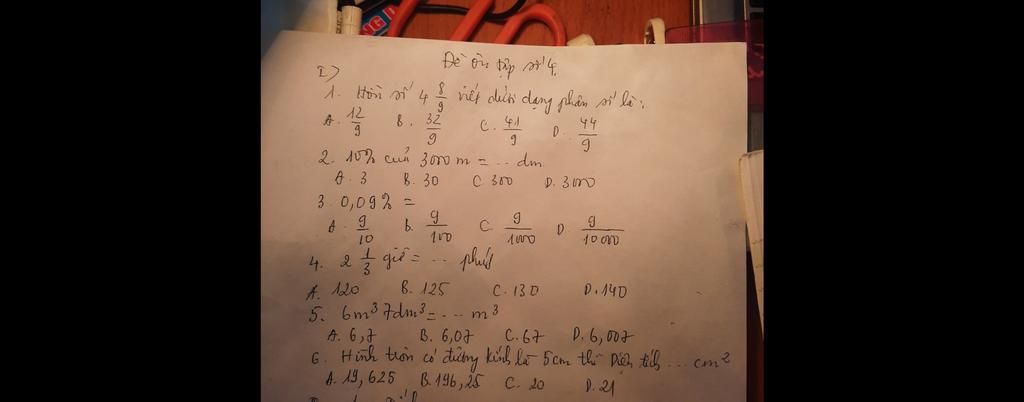 Đề ôn tập số 4.
I)
1. Hỗn số 4 8/9 viết dưới dạng phân số là:
A. 12/9 B. 32/9 C. 41/9 D. 44/9
2. 10% của 3000 m = ... dm
A. 3 B. 30 C. 300 D. 3000
3. 0,09% =
A. 9/10 B. 9/100 C. 9/1000 D. 9/10000
4. 2 1/3 giờ = ... phút
A. 120 B. 125 C. 130 D. 140
5. 6m³ 7dm³ = ... m³
A. 6,7 B. 6,07 C. 67 D. 6,007
6. Hình tròn có đường kính là 5cm thì Diện tích ... cm²
A. 19,625 B. 196,25 C. 20 D. 21